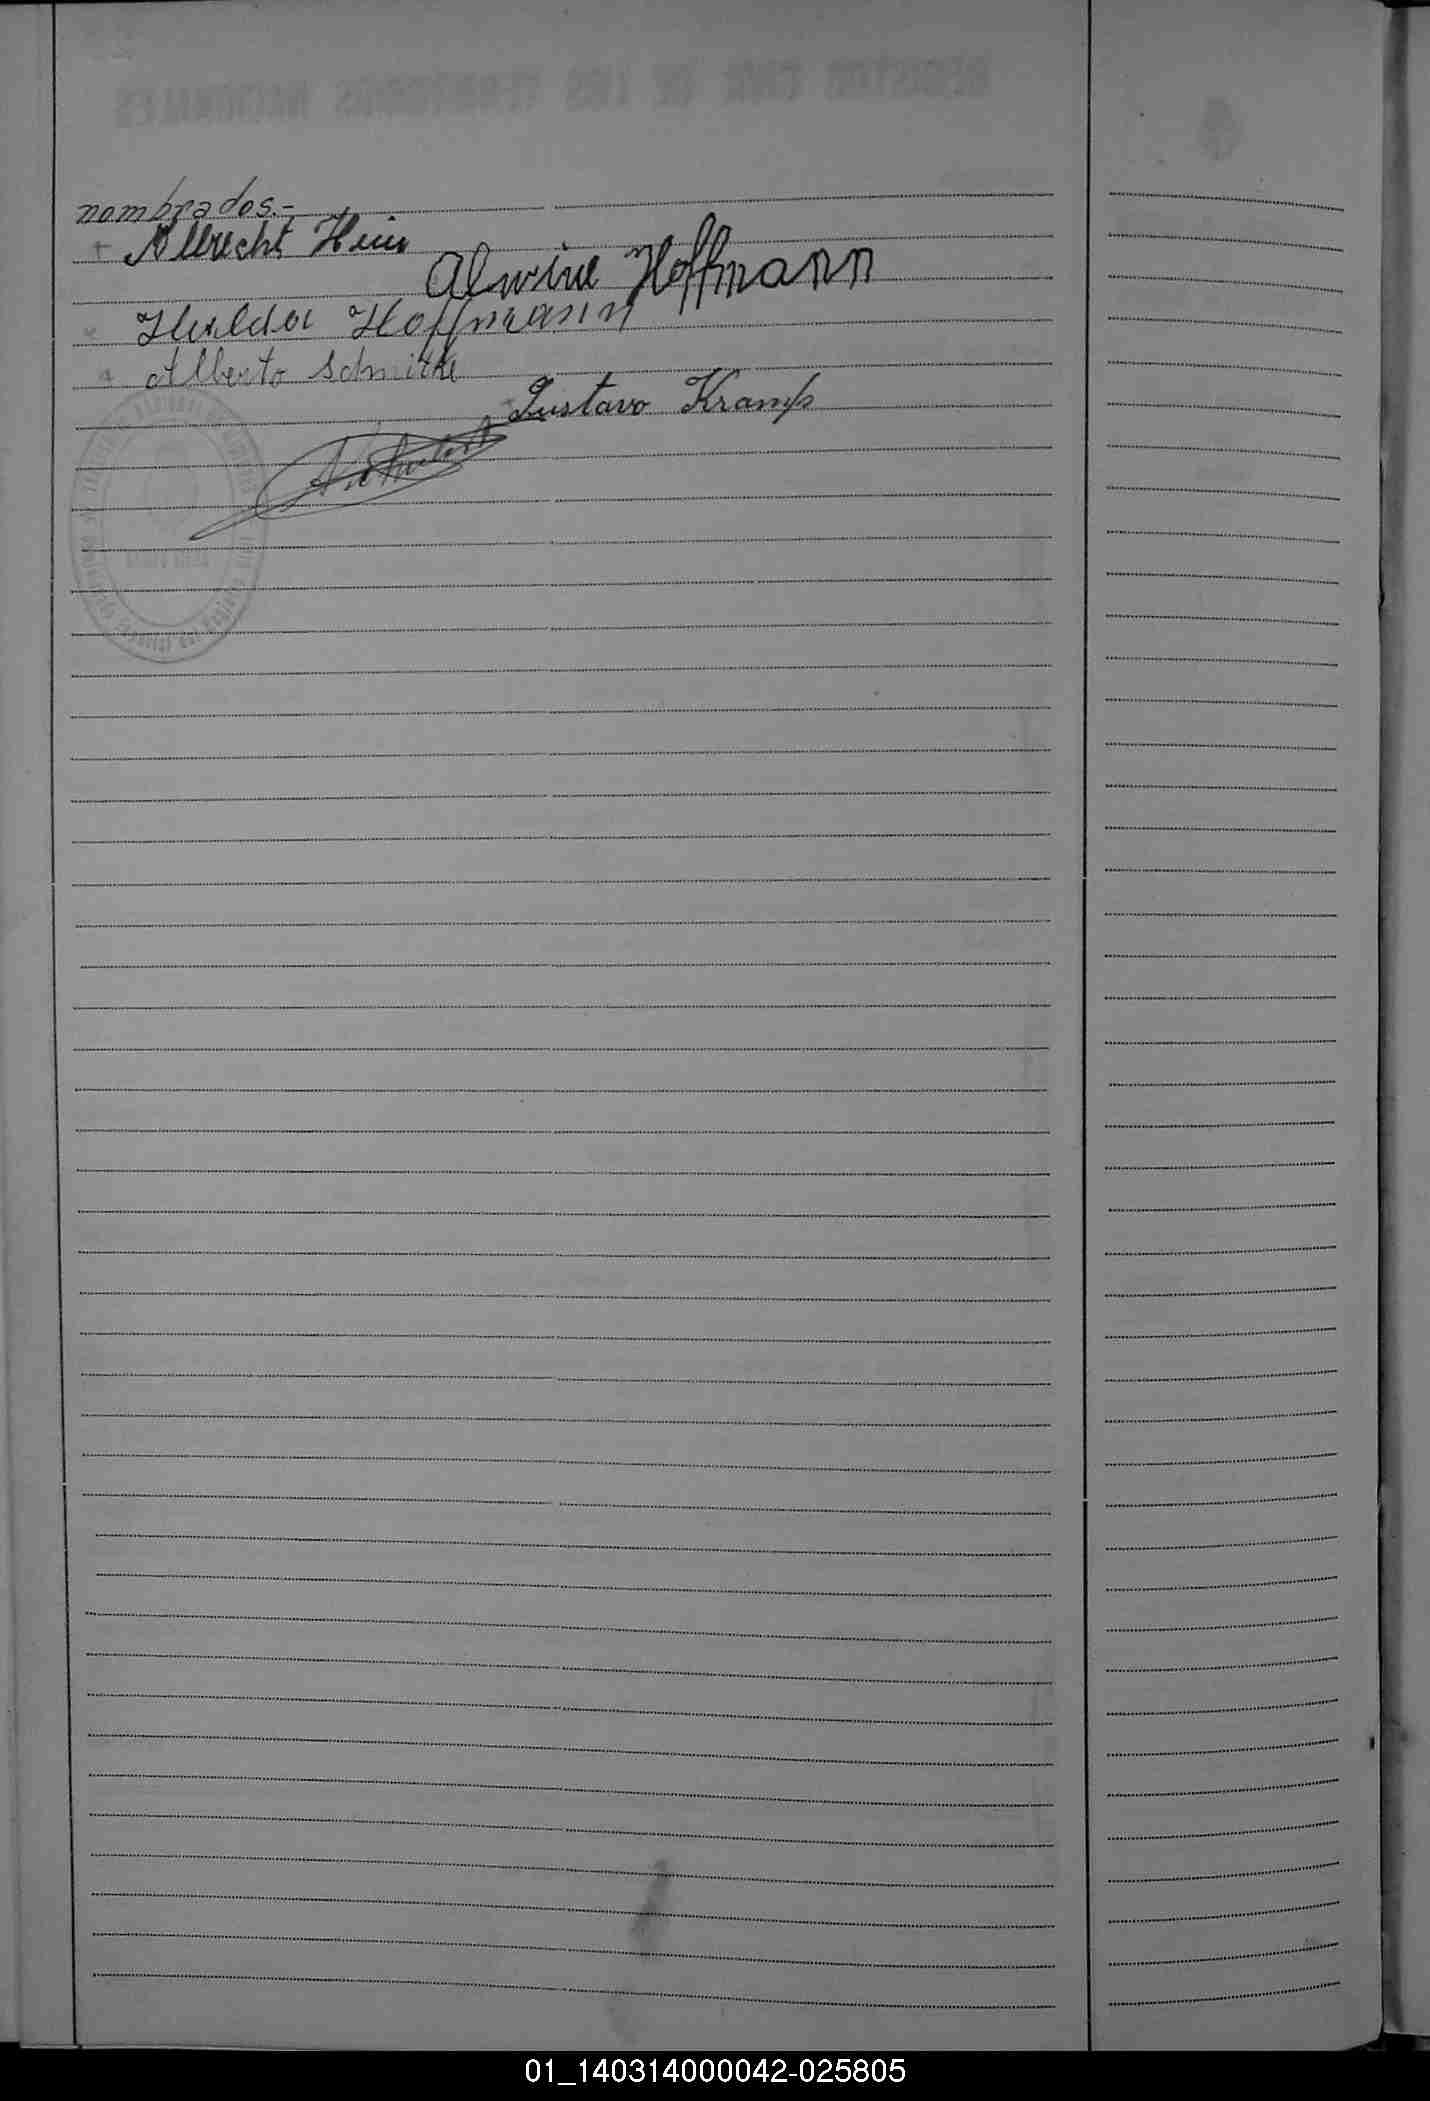 nombrados.-
+ Albrecht Hein
Alwine Hoffmann
x Hulda Hoffmann
x Alberto Schmitke
Gustavo Kramp
01_140314000042-025805